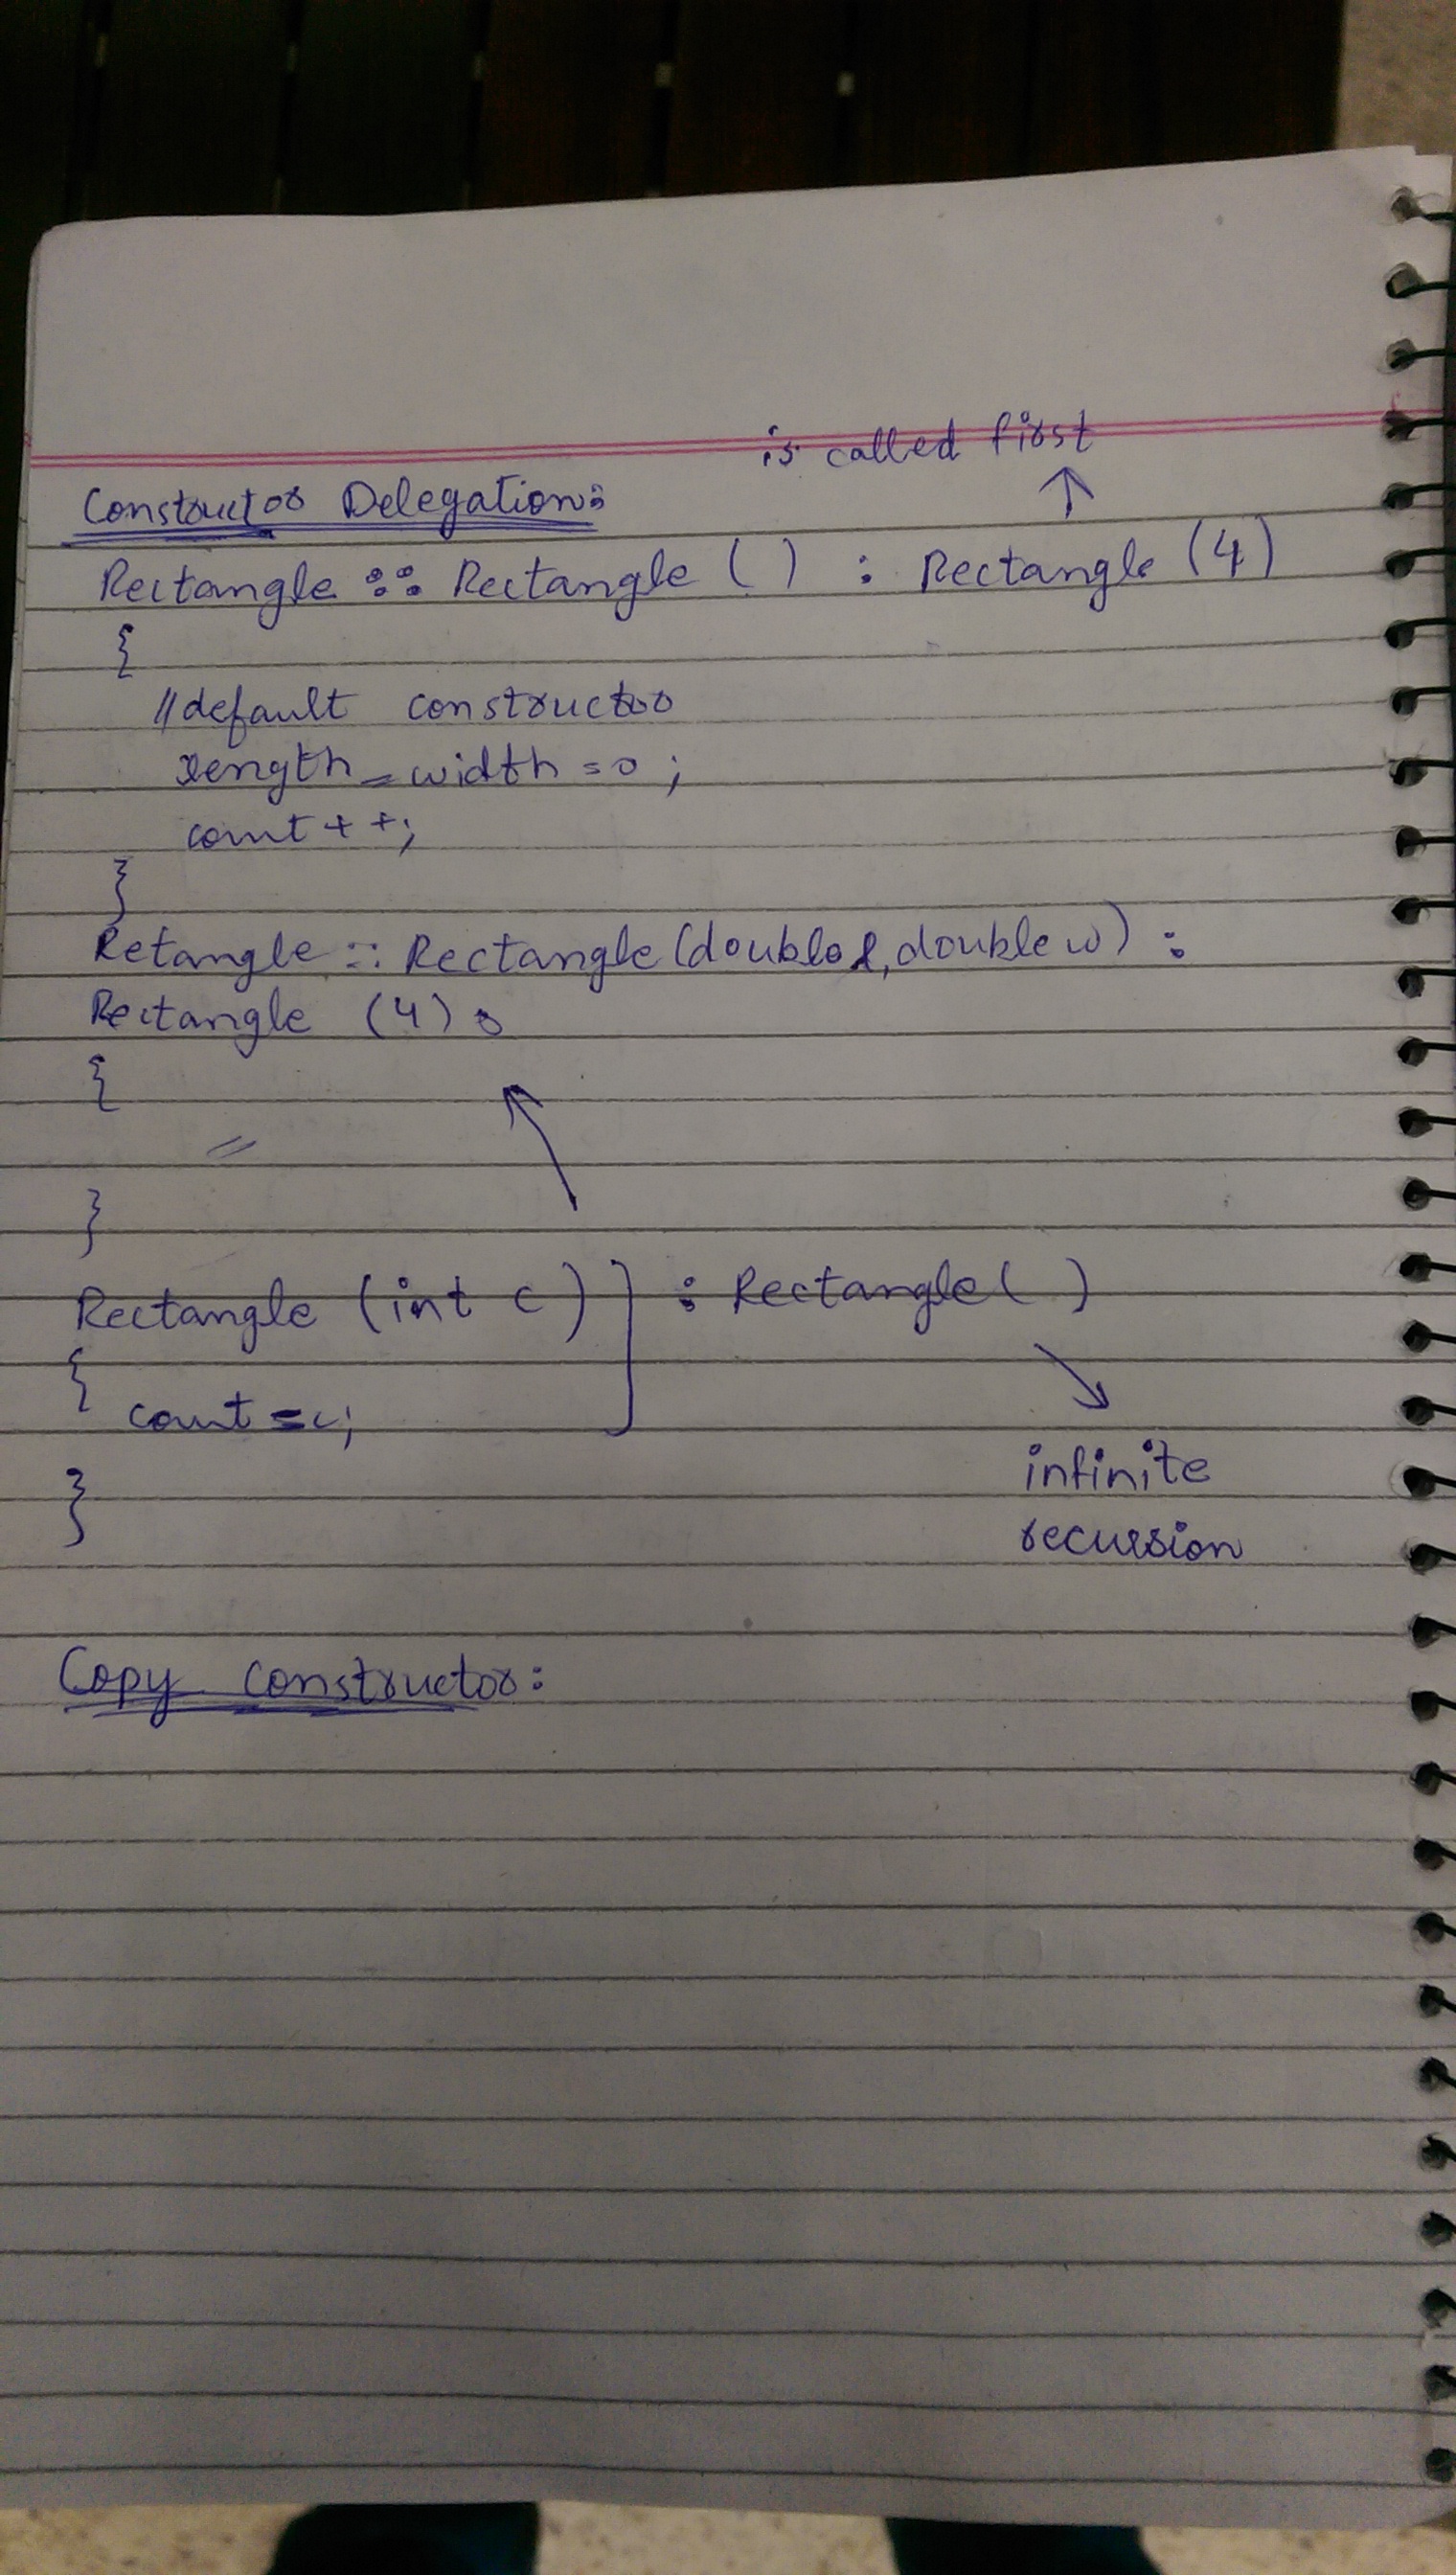 is called first
Constructor Delegation:
Rectangle :: Rectangle ( ) : Rectangle (4)
{
//default constructor
length = width = 0 ;
count + +;
}
Retangle :: Rectangle (double l, double w) :
Rectangle (4)
{
}
Rectangle (int c) ] : Rectangle ( )
{
count = c;
}
infinite
recursion
Copy constructor: